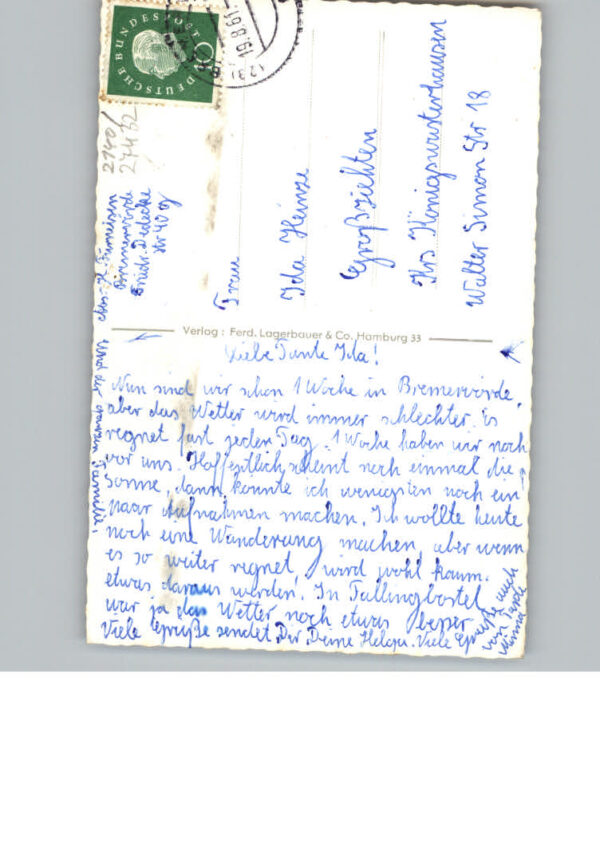 DEUTSCHE BUNDESPOST
19.8.61
2140/
27462
Bremervörde
Frau
Ida Heinze
Großziehten
Krs Königswusterhausen
Walter Simon Str 18
Verlag: Ferd. Lagerbauer & Co. Hamburg 33
Liebe Tante Ida!
Nun sind wir schon 1 Woche in Bremervörde,
aber das Wetter wird immer schlechter. Es
regnet fast jeden Tag. 1 Woche haben wir noch
vor uns. Hoffentlich scheint noch einmal die
Sonne, dann könnte ich wenigsten noch ein
paar Aufnahmen machen. Ich wollte heute
noch eine Wanderung machen, aber wenn
es so weiter regnet, wird wohl kaum
etwas daraus werden. In Fallingbostel
war ja das Wetter noch etwas besser.
Viele Grüße sendet Dir Deine Helga. Viele Grüße auch
von Tante
Minna
und der ganzen Familie!